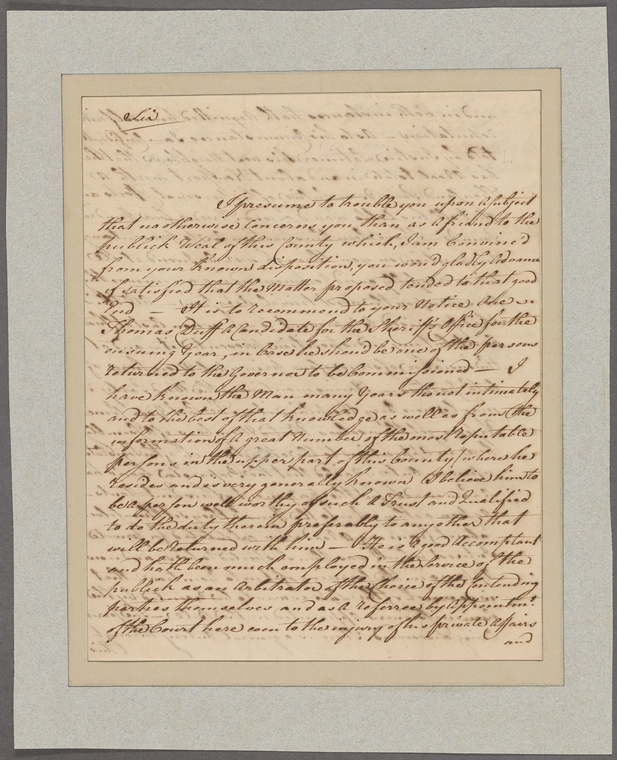 Sir
I presume to trouble you upon a Subject
that no otherwise Concerns you, than as a friend to the
publick Weal of this County which, I am Convinc'd
from your known Disposition, you wou'd gladly Advance
if satisfied that the Matter proposed tended to that good
End — It is to recommend to your Notice One
Thomas Duff a Candidate for the Sheriff's Office for the
ensuing Year, in Case he should be one of the persons
returned to the Governor to be Commissioned — I
have known the Man many Years tho not intimately
and to the best of that knowledge as well as from the
information of a great Number of the most reputable
persons in the upper part of this County, where he
resides and is very generally known I believe him to
be a person well worthy of such a Trust and Qualified
to do the duty therein preferably to any other that
will be returned with him — He is a good Accomptant
and hath been much employed in the Service of the
publick as an Arbitrator of the Choice of the Contending
parties themselves and as a referree by Appointmt.
of the Court here even to the injury of his private Affairs
and